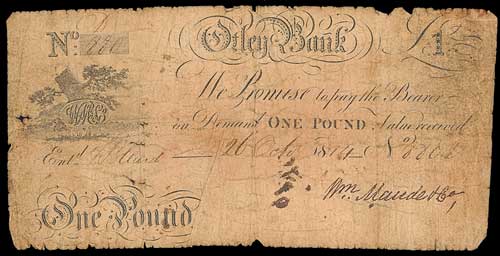 No. Otley Bank £1
WM&Co
We Promise to pay the Bearer
on Demand ONE POUND Value received
Entd. 26 Octr. 1814 No
Wm. Maude & Co,
One Pound